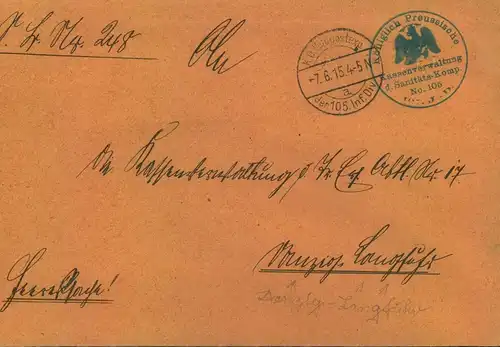 No. 248
An
K.D. Feldpostexp.
-7.6.15.4-5N
a
der 105. Inf. Div.
Königlich Preussische
Kassenverwaltung
d. Sanitäts-Komp.
No. 105
die Kassenverwaltung d. Tr. Abtl. Nr. 17
Danzig-Langfuhr
Heeressache!
Danzig-Langfuhr